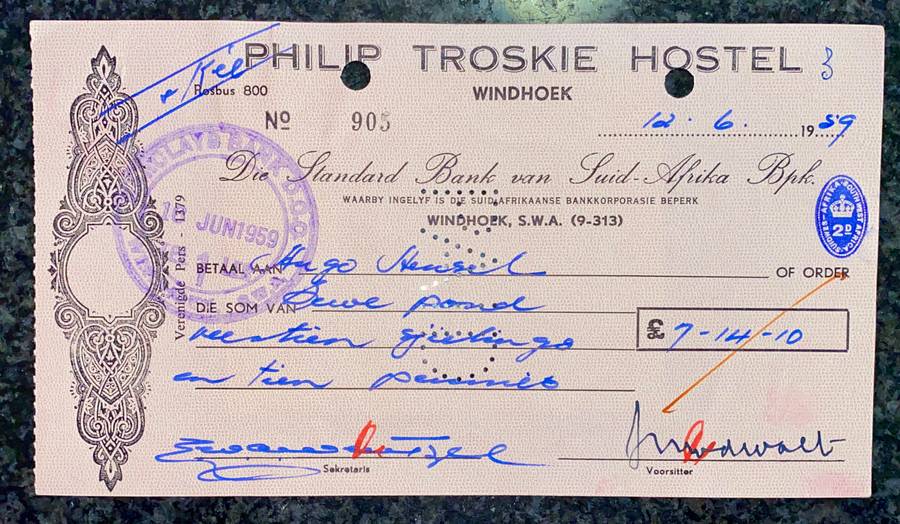 PHILIP TROSKIE HOSTEL 3
Posbus 800
WINDHOEK
Nº 905
12.6.1959
Die Standard Bank van Suid-Afrika Bpk.
WAARBY INGELYF IS DIE SUID-AFRIKAANSE BANKKORPORASIE BEPERK
WINDHOEK, S.W.A. (9-313)
BARCLAYS BANK D.C.O.
JUN1959
SUIDWES-AFRIKA SOUTH WEST AFRICA
2D
Verenigde Pers - 1379
BETAAL AAN Hugo Hensel OF ORDER
DIE SOM VAN Sewe pond
veertien sjielings
£ 7-14-10
en tien pennies
Sekretaris
Voorsitter